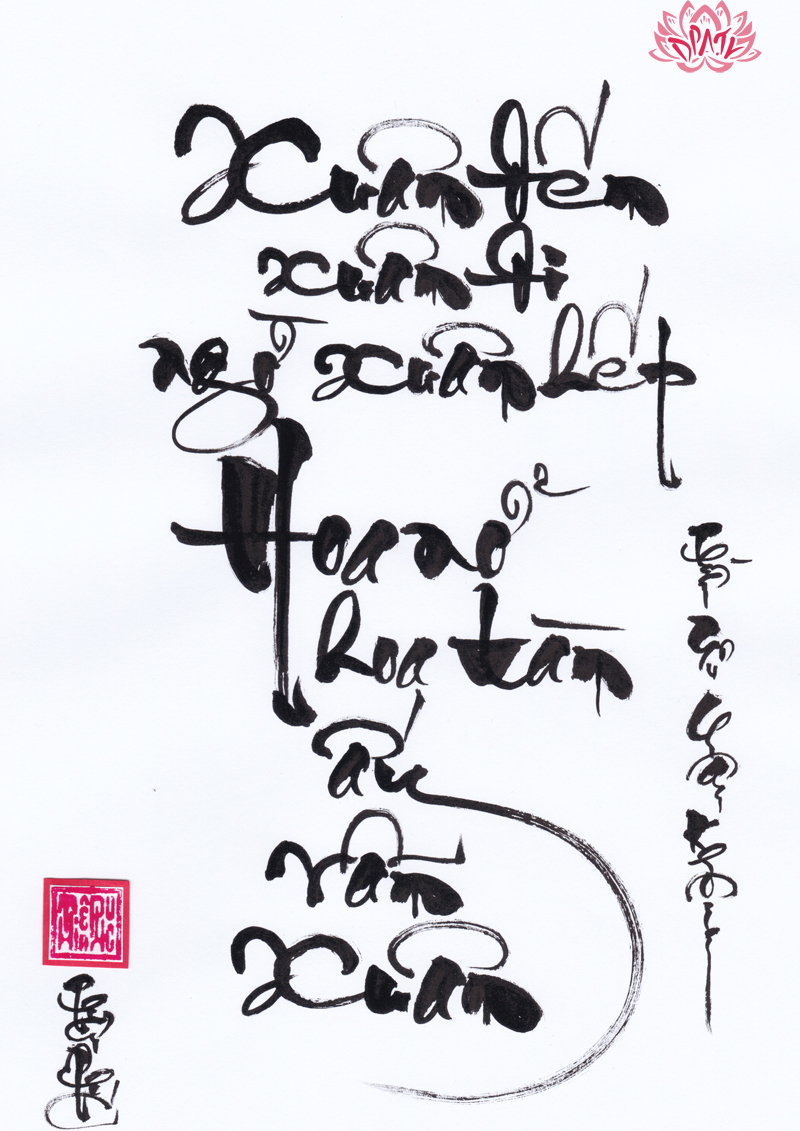 DPATV
Xuân đến
xuân đi
ngờ xuân hết
Hoa nở
hoa tàn
ấy
vẫn
Xuân